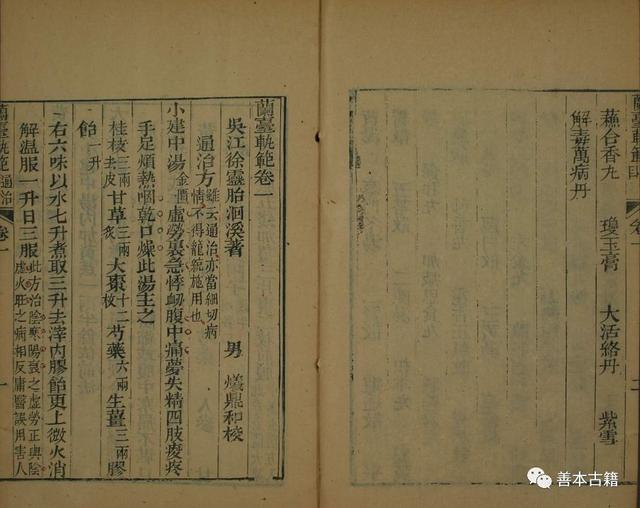 蘭臺軌範目
二
蘇合香丸 瓊玉膏 大活絡丹 紫雪
解毒萬病丹
蘭臺軌範卷一
吳江徐靈胎洄溪著 男 爔鼎和校
通治方 雖云通治亦當細切病情不得籠統施用也
小建中湯 金匱 虛勞裏急悸衂腹中痛夢失精四肢痠疼
手足煩熱咽乾口燥此湯主之
桂枝三兩去皮 甘草三兩炙 大棗十二枚 芍藥六兩 生薑三兩 膠
飴一升
右六味以水七升煮取三升去滓內膠飴更上微火消
解温服一升日三服 此方治陰寒陽衰之虛勞正與陰虛火旺之病相反庸醫誤用害人
蘭臺軌範 通治 卷一 一
善本古籍